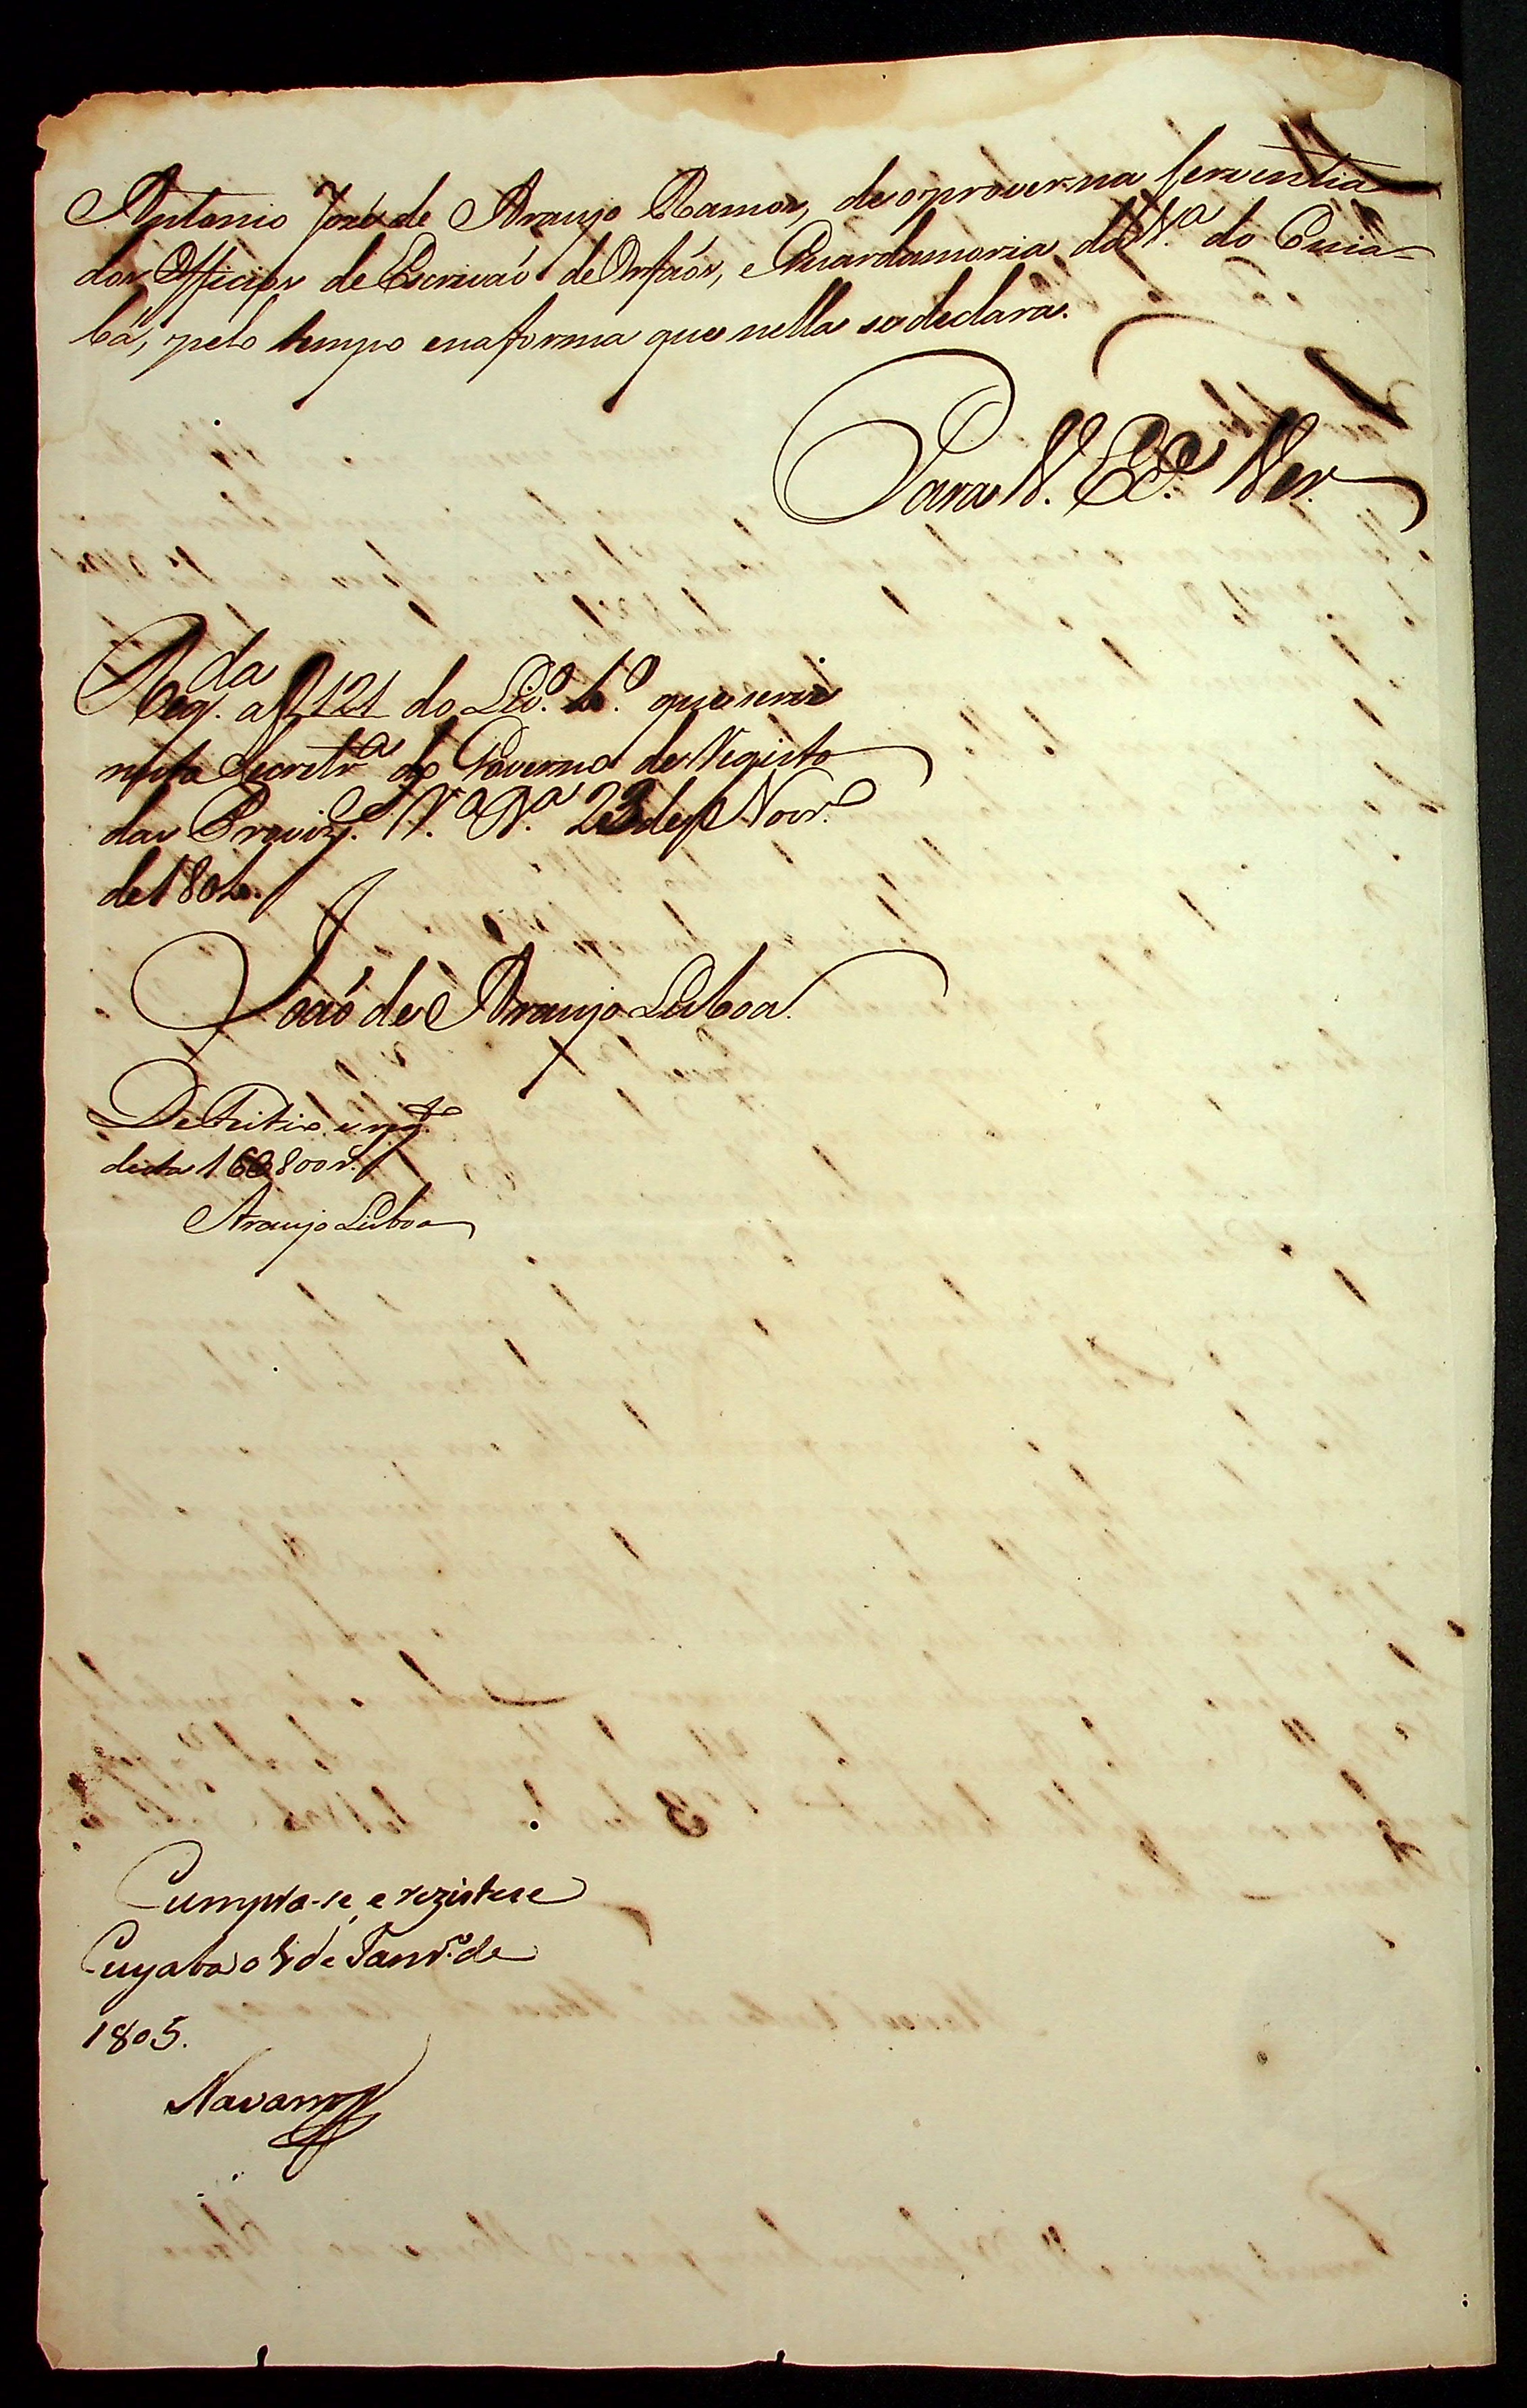 Antonio Jozé de Araujo Ramos, de o prover na serventia
dos Officios de Escrivaõ de Orfaõs, e Guardamoria da V.ª do Cuia-
bá, pelo tempo e na forma que nella se declara.
Para V. Ex.ª Ver.
Reg.da a f 121 do Liv.º 1.º que serve
nesta Secretr.ª do Governo de Registo
das Proviz.es V.ª B.ª 23 de Novr.º
de 1804.
Joaõ de Araujo Lisboa.
De Feitio, e reg.to
desta 16800 r.s
Araujo Lisboa
Cumpra-se, e rezistese
Cuyaba de Janr.º de
1805.
Navarro